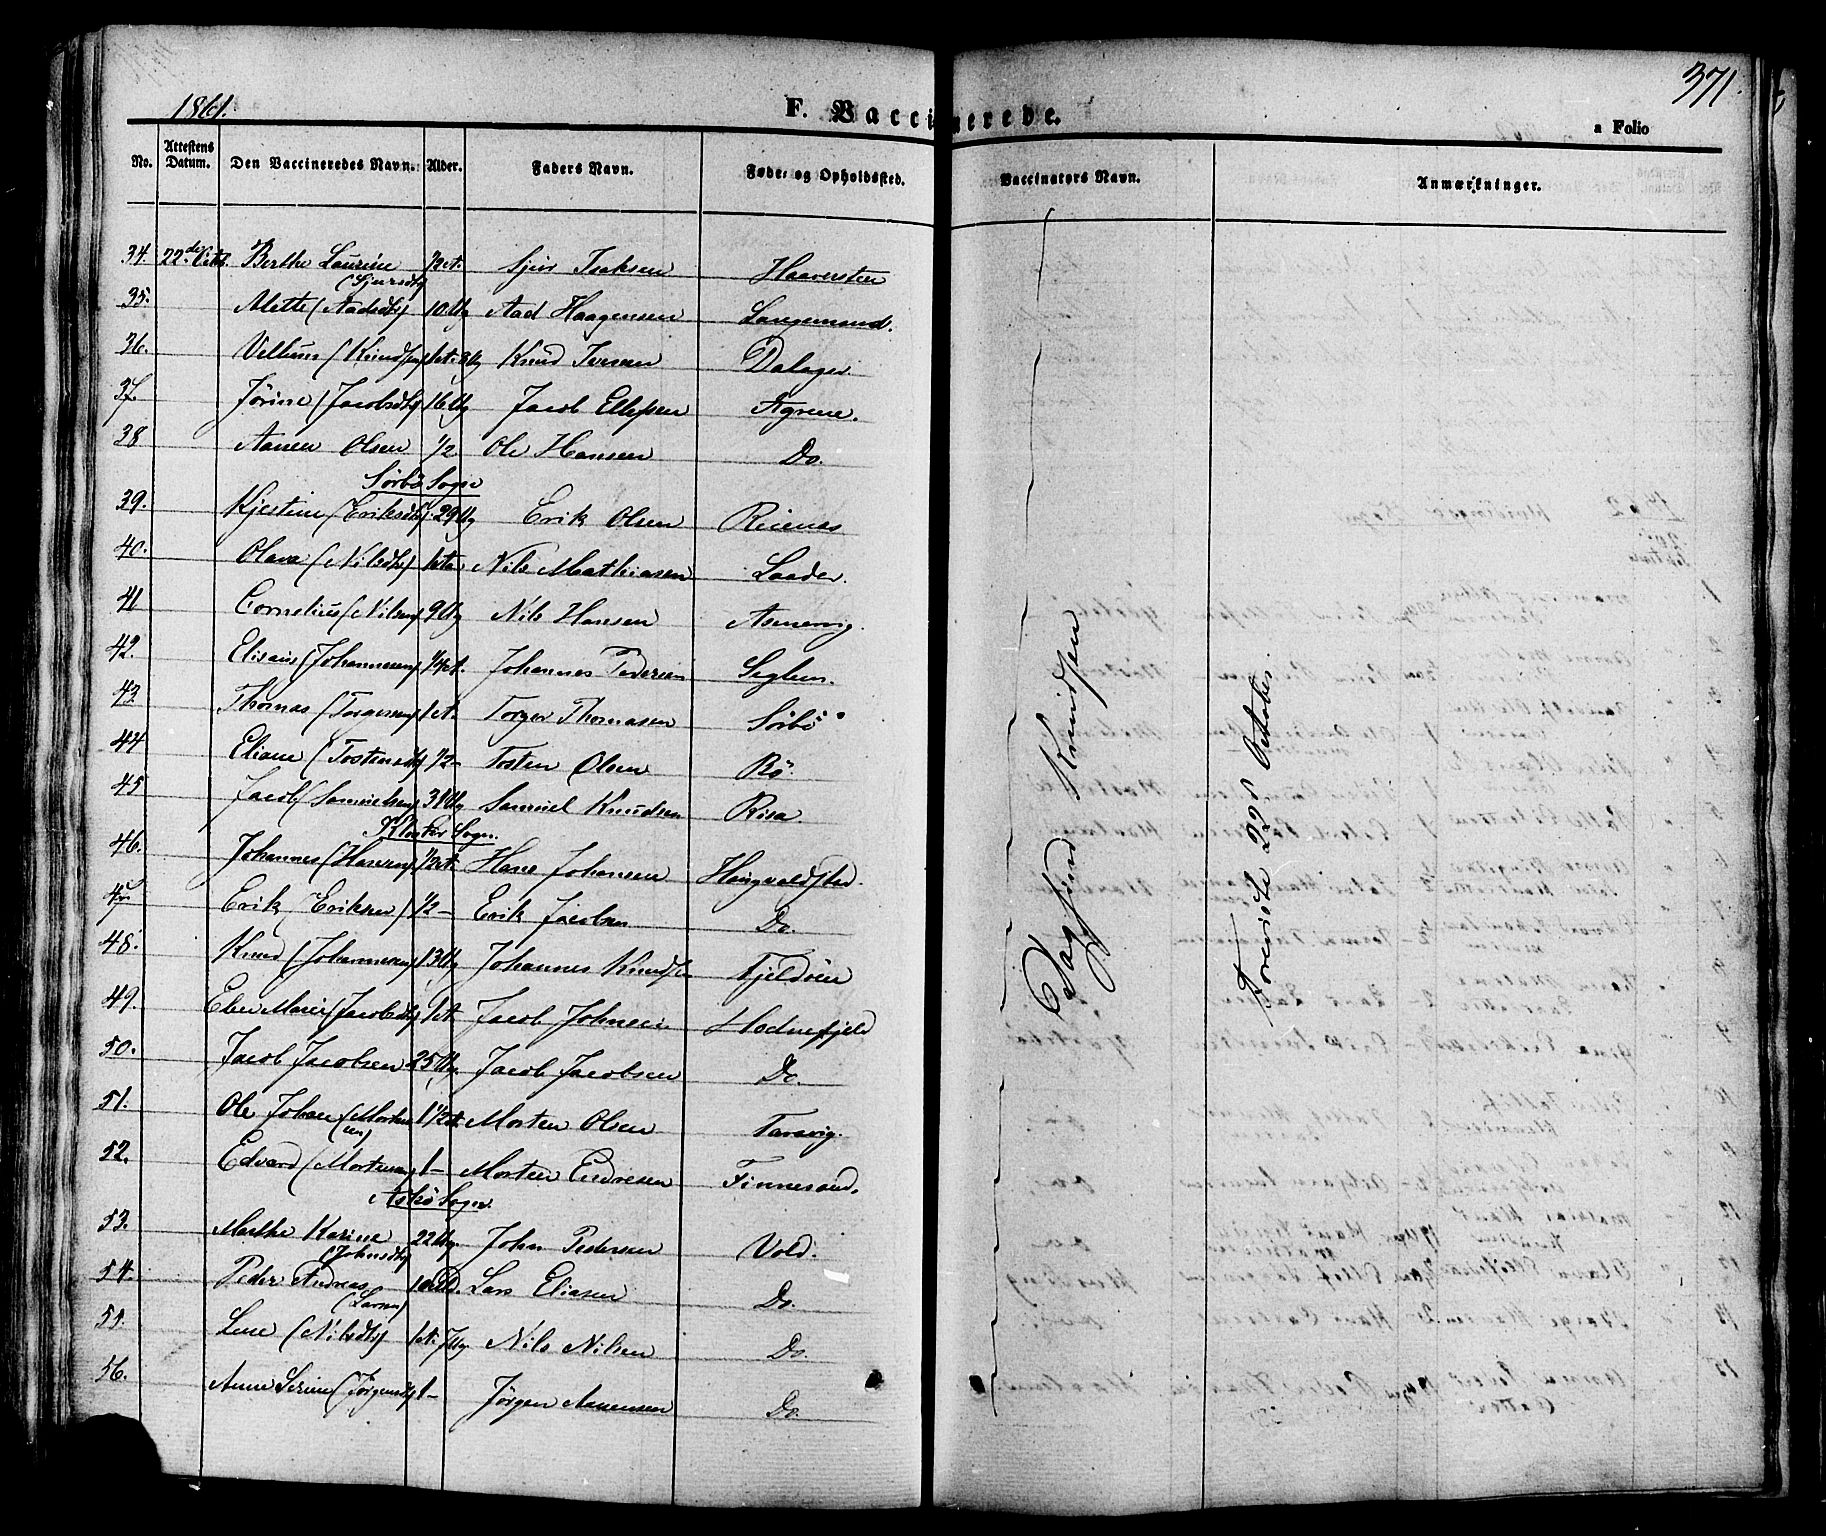 1861.
F. Vaccinerede.
371.
a Folio
No. Attestens Datum. Den Vaccineredes Navn. Alder. Faders Navn. Føde- og Opholdssted. Vaccinators Navn. Anmærkninger.
34. 22de Octb. Berthe Laurine (Sjursdtr) 1/2 et. Sjur Isaksen Haaversteen
35. Alette (Aadsdtr) 10 Ug Aad Haagensen Langemand.
36. Villum (Knudsen) 1 et. 3 Ug Knud Iversen Dalager
37. Jørine (Jacobsdtr) 16 Ug Jacob Ellefsen Ngrene.
38 Aanen Olsen 1/2 Ole Hansen Do.
Sørbø Sogn
39. Kjestine (Eriksdtr) 29 Ug Erik Olsen Reienes
40. Olava (Nilsdtr) 1 et Nils Mathiasen Laader.
41 Cornelius (Nilsen) 9 Ug Nils Hansen Asmervig.
42. Elisæus (Johannesen) 1/4 et. Johannes Pedersen Seglem.
43. Thomas (Torgersen) 1 et. Torger Thomasen Sørbø
44 Eliane (Tostensdtr) 1/2 - Tosten Olsen Bø.
45 Jacob (Samuelsen) 31 Ug Samuel Knudsen Risa.
Kloster Sogn.
46. Johannes (Hansen) 1/2 et. Hans Johansen Haugvaldstad.
47 Erik (Eriksen) 1/2 - Erik Jacobsen Do.
48. Knud (Johannesen) 13 Ug Johannes Knuds. Fjeldøen
49. Elen Marie (Jacobsdtr) 1 et. Jacob Johnsen Hodnefjeld
50. Jacob Jacobsen 25 Ug. Jacob Jacobsen Do.
51. Ole Johan (Mortensen) 1 1/2 et. Morten Olsen Faravig.
52. Edvard (Mortensen) 1 - Morten Endresen Finnesand.
Askø Sogn.
53. Marthe Karine (Johnsdtr) 22 Ug. John Pedersen Vold.
54. Peder Andreas (Larsen) Lars Eliasen Do.
55. Lene (Nilsdtr) 1 et. 7 Ug Nils Nilsen Do.
56. Anne Serine (Jørgensdtr) 1 - Jørgen Aanensen Do.
Dagfind Knudsen
Foreviste 22de October.